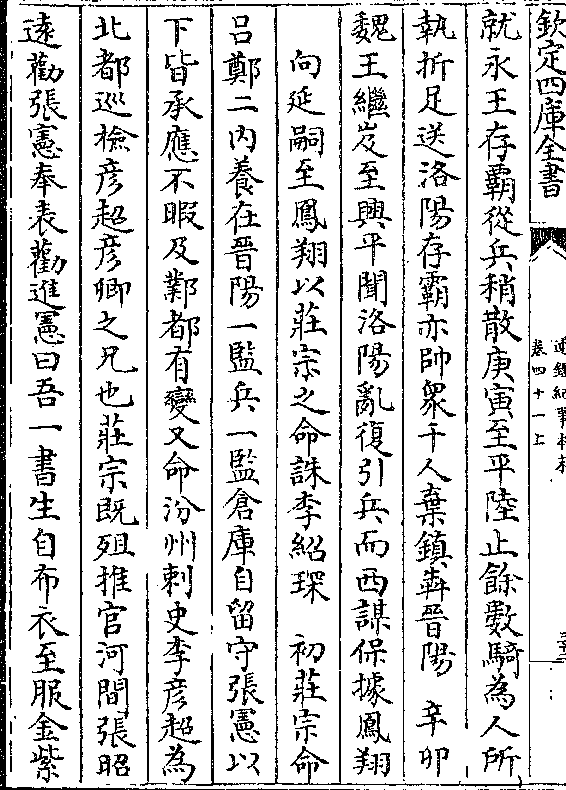 欽定四庫全書
通鑑紀事本末
卷四十一上
就永王存霸從兵稍散庚寅至平陸止餘數騎為人所
執折足送洛陽存霸亦帥衆千人棄鎮犇晉陽　辛卯
魏王繼岌至興平聞洛陽亂復引兵而西謀保據鳳翔
向延嗣至鳳翔以莊宗之命誅李紹琛　初莊宗命
吕鄭二内養在晉陽一監兵一監倉庫自留守張憲以
下皆承應不暇及鄴都有變又命汾州刺史李彦超為
北都巡檢彦超彦卿之兄也莊宗既殂推官河間張昭
遠勸張憲奉表勸進憲曰吾一書生自布衣至服金紫